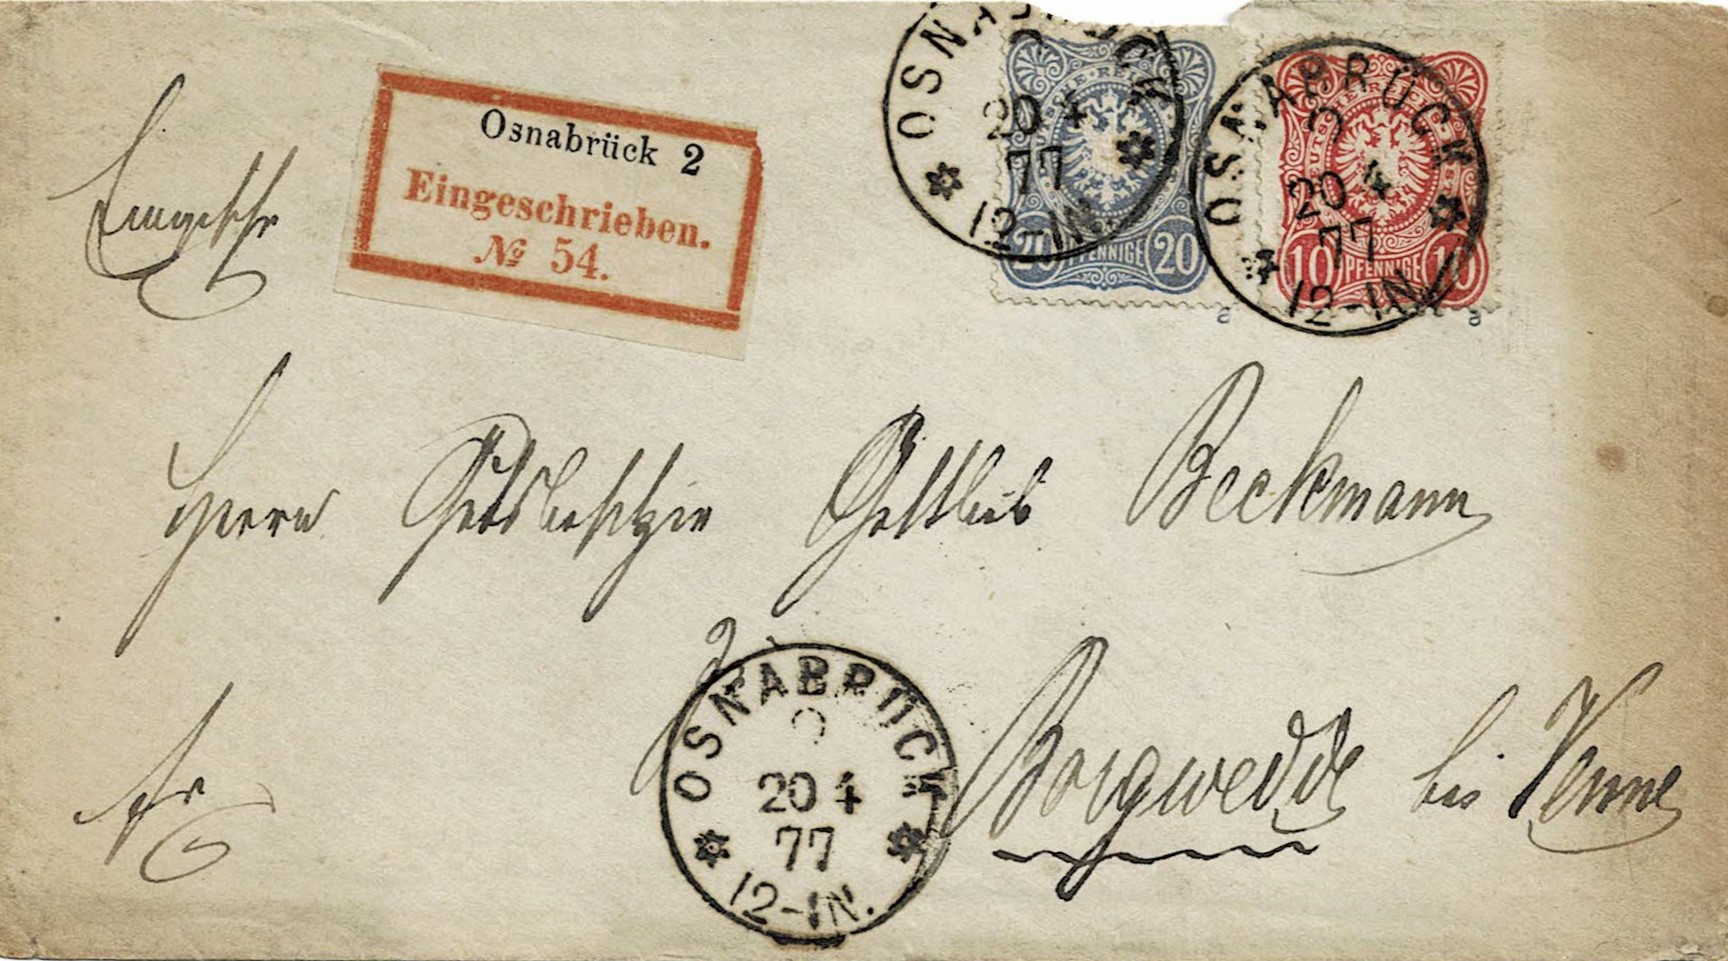 Osnabrück 2
Eingeschrieben.
№ 54.
OSNABRÜCK
20 4
77
12-1N.
DEUTSCHE REICHS-POST
20 PFENNIGE 20
OSNABRÜCK
2
20 4
77
12-1N.
10 PFENNIGE 10
a
a
Eingeschr
Herrn Gutsbesitzer Gottlieb Beckmann
zu
Borgwedde bei Venne
fr
OSNABRÜCK
2
20 4
77
12-1N.